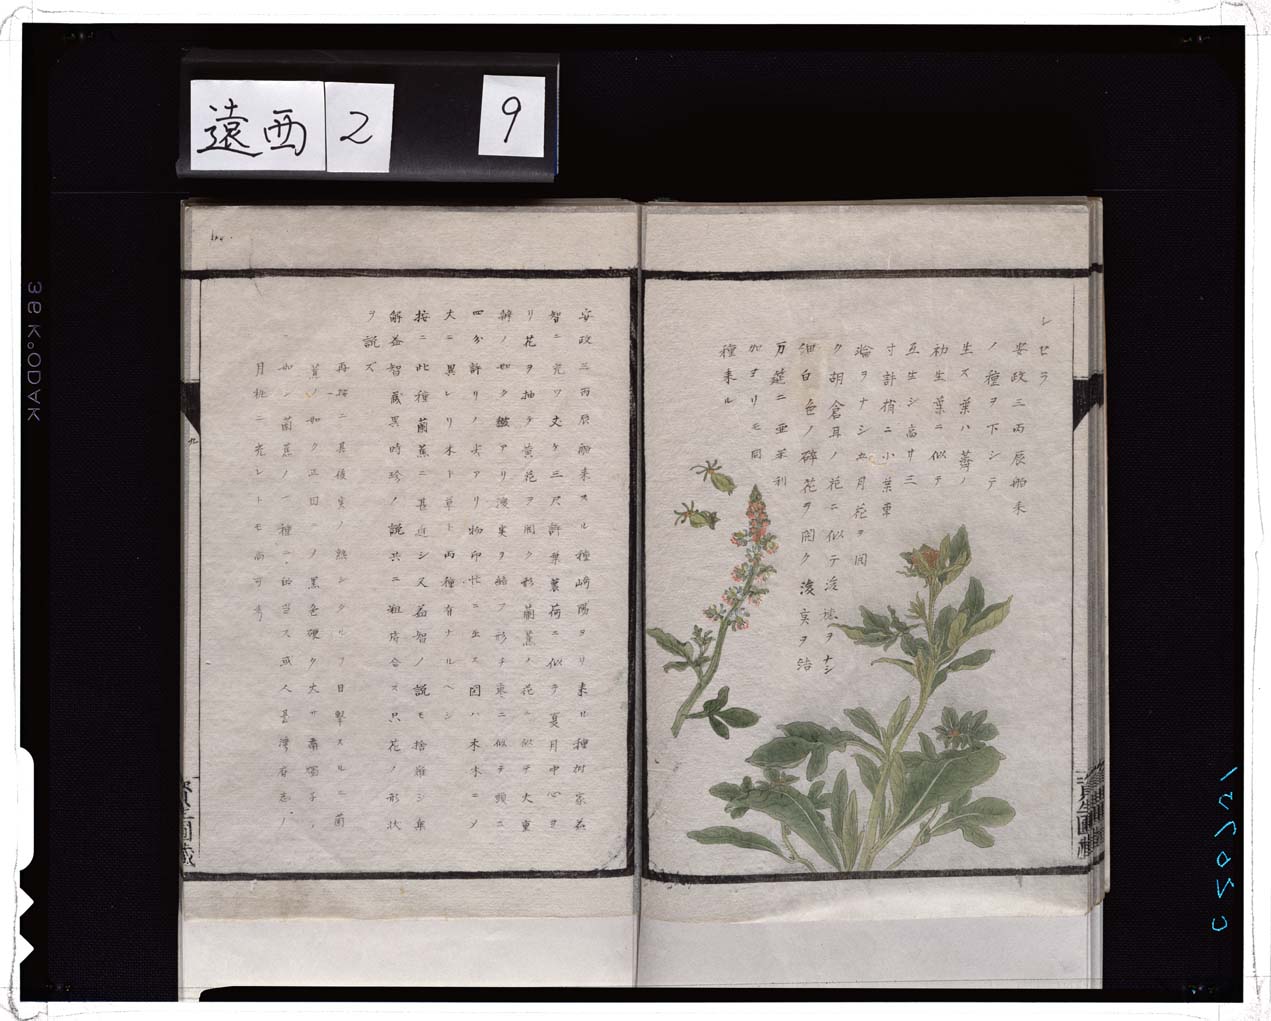 遠西 2 9
レセラ
安政三丙辰舶来
ノ種ヲ下シテ
生ズ葉ハ薺ノ
初生葉ニ似テ
互生シ高サ三
寸計梢ニ小葉東
淪ヲナシ五月花ヲ開
ク胡倉耳ノ花ニ似テ後穂ヲナシ
細白色ノ砕花ヲ開ク後実ヲ結
万筵ニ亜茉利
加ヨリモ同
種来ル
安政三丙辰舶来スル種崎陽ヨリ来ル種樹家益
智ニ充ツ丈ケ三尺許葉蘘荷ニ似テ夏月中心ヨ
リ花ヲ抽テ黄花ヲ開ク形蘭蕉ノ花ニ似テ大重
弁ノ如ク皺アリ後実ヲ結フ形チ棗ニ似テ頭ニ
四分許リノ尖アリ物印忙ニ出ス図ハ木本ニソ
大ニ異レリ木ト草ト両種有ナルヘシ
按ニ此種蘭蕉ニ甚近シ又益智ノ説モ捨難シ集
解益智蔵異時珍ノ説共ニ粗符合ス只花ノ形状
ヲ説ズ
再按ニ其後実ノ熟シタルヲ目撃スルニ蘭
蕉ノ如ク正円ノ黒色硬ク大サ
如シ蘭蕉ノ一種ニ的当ス或人台湾府志ノ
月桃ニ充レトモ尚可考
九
資生圃蔵
資生圃蔵
36 KODAK